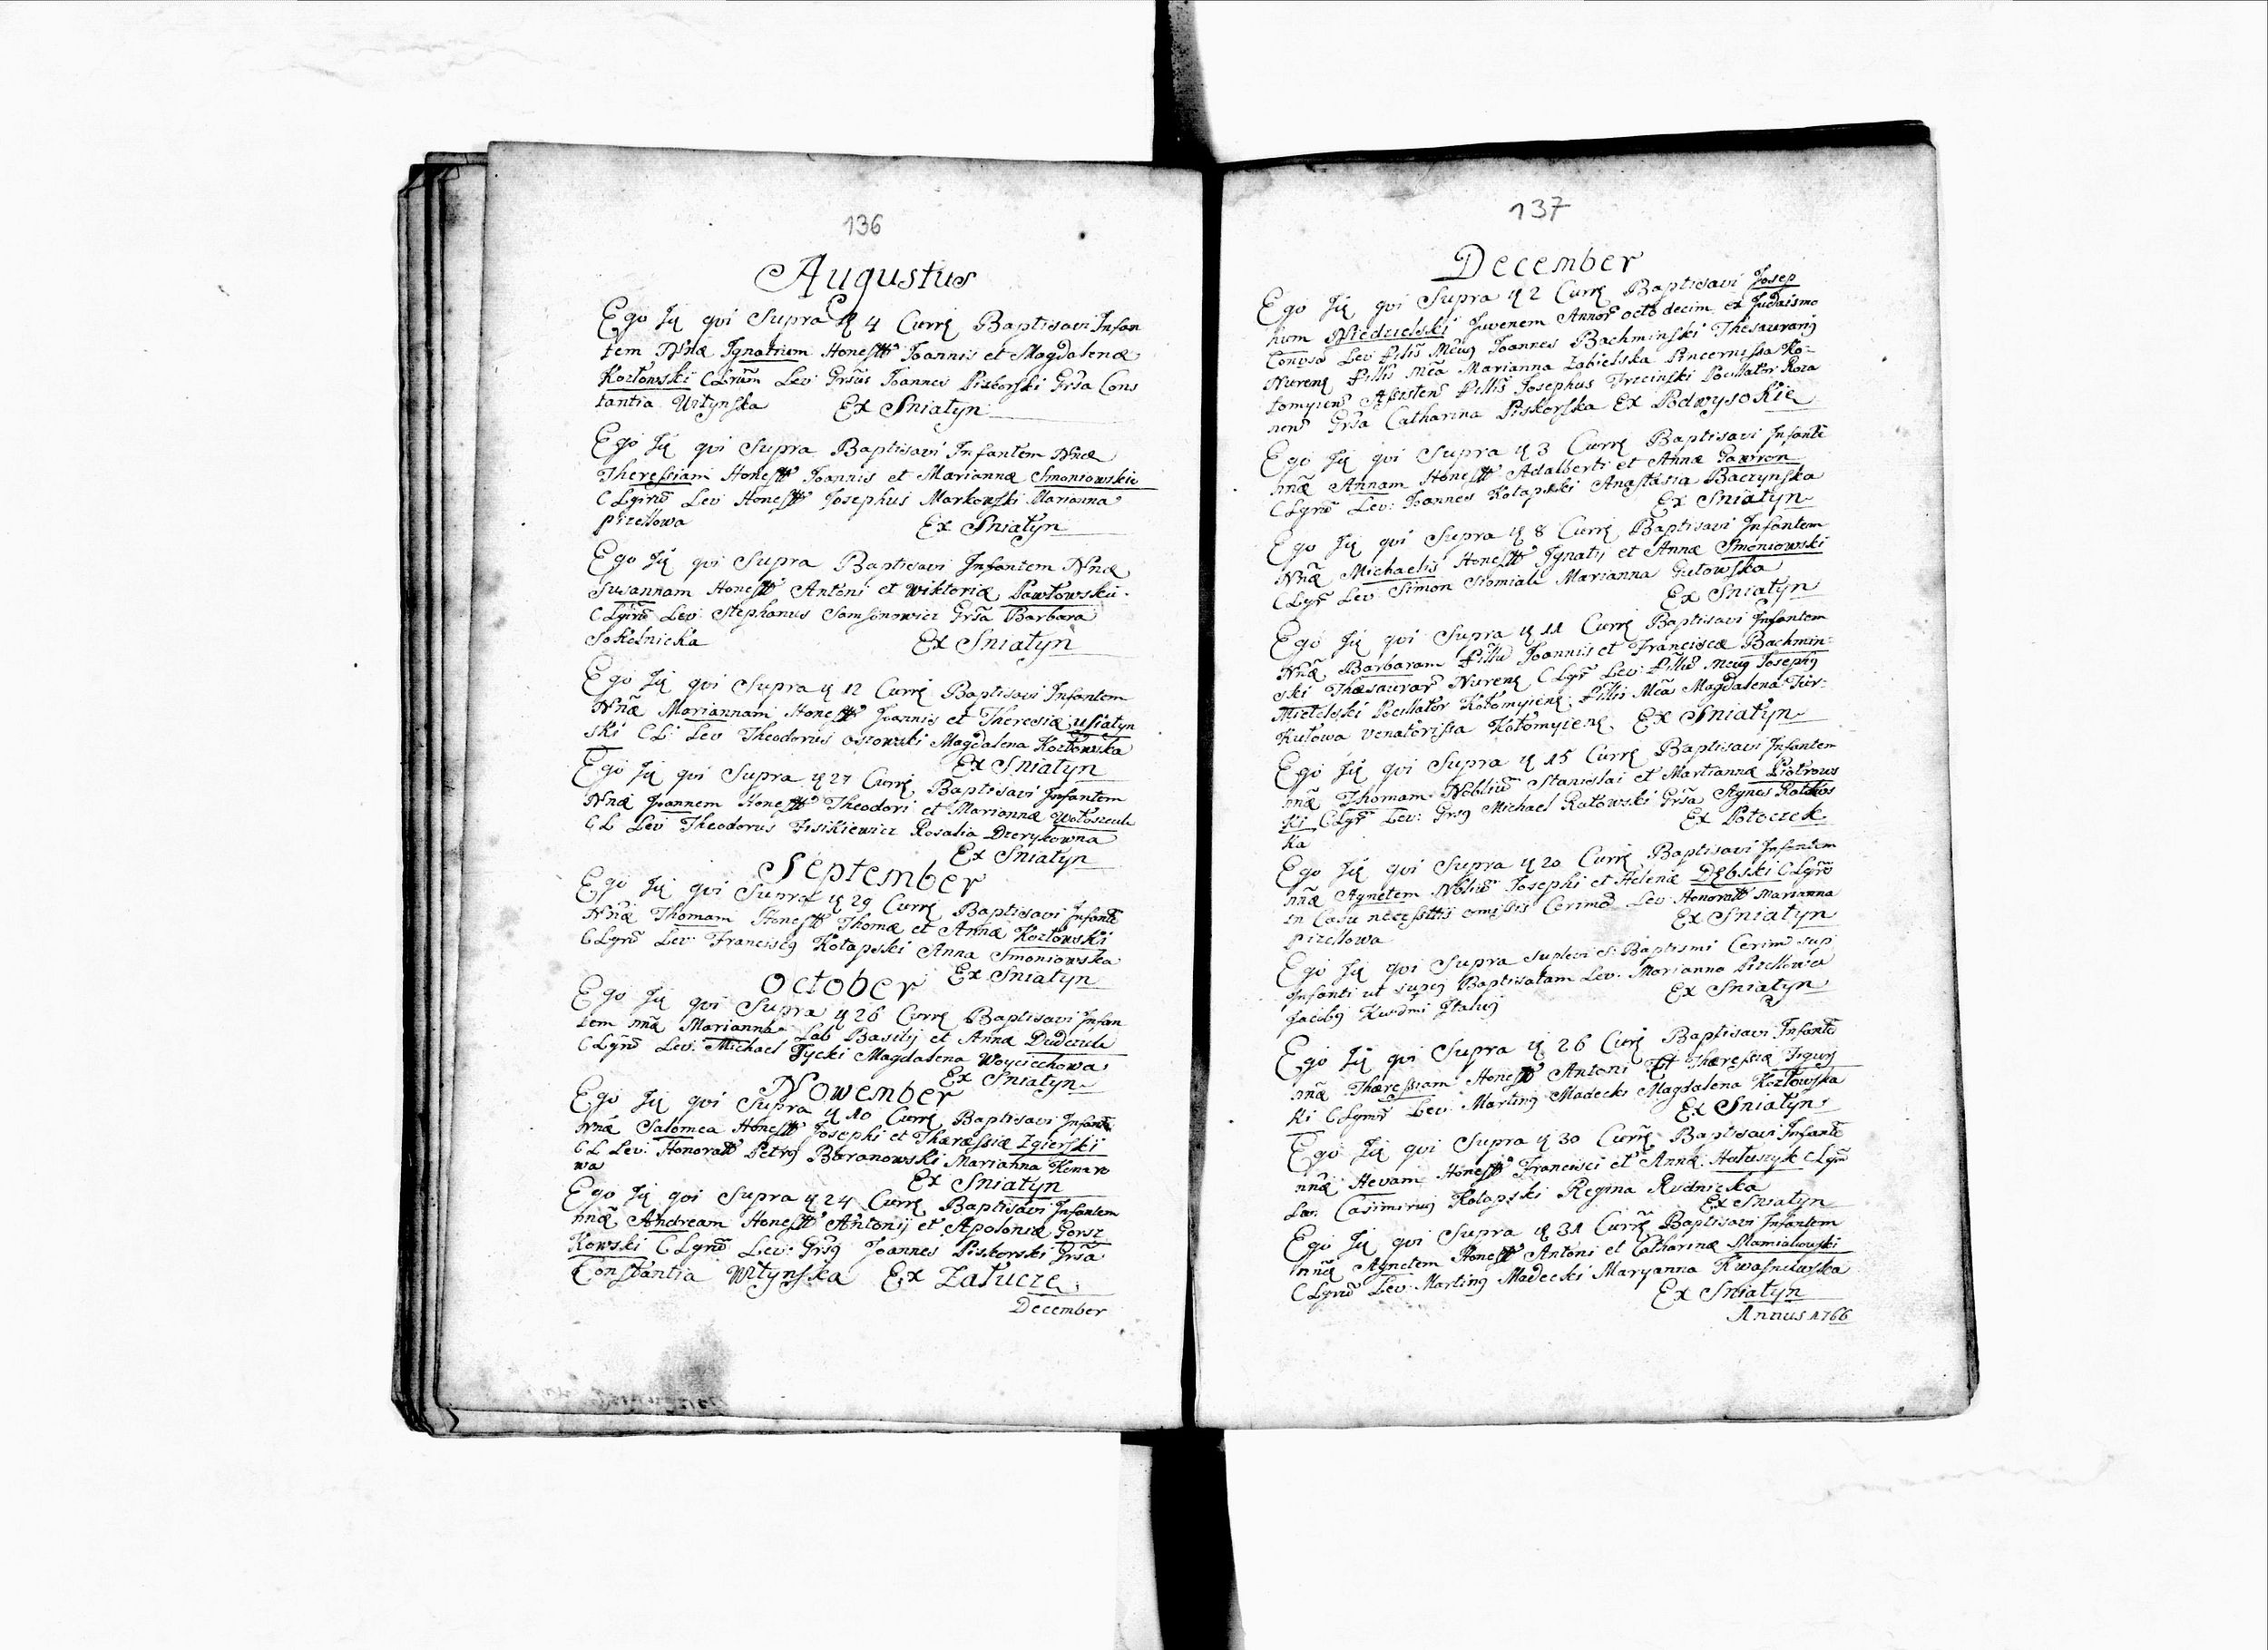 136
Augustus
Ego Ją qvi Supra ą 4 Currę Baptisavi Infan
tem Nnæ Ignatium Honestt Joannis et Magdalenæ
Kozłowski CLrum Lev: Grsus Joannes Piskorski Grsa Cons
tantia Witynska Ex Sniatyn
Ego Ją qvi Supra Baptisavi Infantem Nnæ
Theressiam Honestt Joannis et Mariannæ Smoniowskie
CLgirũ Lev Honestt Josephus Markowski Marianna
Przettowa Ex Sniatyn
Ego Ją qvi Supra Baptisavi Infantem Nnæ
Susannam Honestt Antoni et Wiktoriæ Pawłowskii
CLgirũ Lev: Stephanus Samsonowicz Grsa Barbara
Sokolnicka Ex Sniatyn
Ego Ją qvi Supra ą 12 Currę Baptisavi Infantem
Nnæ Mariannam Honestt Joannis et Theresiæ Usiatyn
ski CL: Lev Theodorus Osowski Magdalena Kozłowska
Ex Sniatyn
Ego Ją qvi Supra ą 27 Currę Baptisavi Infantem
Nnæ Joannem Honestt Theodori et Mariannæ Wołoszcuk
CL Lev Theodorus Fisikiewicz Rosalia Dzerykowna
Ex Sniatyn
September
Ego Ją qvi Supra ą 29 Currę Baptisavi Infantẽ
Nnæ Thomam Honestt Thomæ et Annæ Kozłowski
CLgrũ Lev: Franciscꝯ Kołapski Anna Smoniowska
Ex Sniatyn
October
Ego Ją qvi Supra ą 26 Currę Baptisavi Infan
tem nnæ Marianna Lab Basilij et Annæ Dudczuk
CLgrũ Lev: Michael Tycki Magdalena Woyciechowa
Ex Sniatyn
Nowember
Ego Ją qvi Supra ą 10 Currę Baptisavi Infantẽ
Nnæ Salomea Honestt Josephi et Thæræssiæ Zgierski
CL Lev: Honoratt Petrꝯ Baranowski Marianna Komaro
wa Ex Sniatyn
Ego Ją qvi Supra ą 24 Currę Baptisavi Infantem
nnæ Andream Honestt Antonij et Apoloniæ Gorsz
Kowski CLgrũ Lev: Grsꝯ Joannes Piskorski Grsa
Constantia Witynska Ex Załucze
December
137
December
Ego Ją qvi Supra ą 2 Currę Baptisavi Josep
hum Niedzielski Juvenem Annor octodecim ex Judaismo
Convsũ Lev Pillis Meuꝯ Joannes Bachminski Thesaurariꝯ
Nurenę Pillis Mea Marianna Zabielska Pincernissa Ko-
lomyienũ Assisten Pillis Josephus Trzcinski Pocillator Roza
nenũ Grsa Catharina Piskorska Ex Podwysokie
Ego Ją qvi Supra ą 3 Currę Baptisavi Infantẽ
nnæ Annam Honestt Adalberti et Annæ Gawron
CLgrũ Lev: Joannes Kolapski Anastasia Baczynska
Ex Sniatyn
Ego Ją qvi Supra ą 8 Currę Baptisavi Infantem
Nnæ Michaelis Honestt Ignatij et Annæ Smoniowski
CLgr Lev Simon Siomiak Marianna Gutowska
Ex Sniatyn
Ego Ją qvi Supra ą 11 Currę Baptisavi Infantem
Nnæ Barbaram Pillũ Joannis et Franciscæ Bachmin-
ski Thæsaurar Nurenę CLgr Lev: Pillũ Meuꝯ Josephꝯ
Mietelski Pocillator Kołomyienę Pillis Mea Magdalena Tur-
Kułowa Venatorissa Kołomyienę Ex Sniatyn
Ego Ją qvi Supra ą 15 Currę Baptisavi Infantem
nnæ Thomam Nobliũ Stanislai et Mariannæ Piotrows
Ki CLgr Lev: Grsꝯ Michael Rutowski Grsa Agnes Rotkos
Ka Ex Potoczek
Ego Ją qvi Supra ą 20 Currę Baptisavi Infantem
nnæ Agnetem Nobliũ Josephi et Helenæ Dębski CLgrũ
in Casu necessittis omissis Cerimo Lev: Honoratt Marianna
Przettowa Ex Sniatyn
Ego Ją qvi Supra suplevi S: Baptismi Cerimo sup
Infanti ut supꝯ Baptisatam Lev: Marianna Przettowa
Jacobꝯ Italuꝯ Ex Sniatyn
Ego Ją qvi Supra ą 26 Curę Baptisavi Infantẽ
nnæ Thæressiam Honestt Antoni Et Thæressiæ Figurs
Ki CLgmũ Lev: Martinꝯ Madecki Magdalena Kozłowska
Ex Sniatyn
Ego Ją qvi Supra ą 30 Currę Baptisavi Infantẽ
nnæ Hevam Honestt Francisci et Annæ Hałuszyk CLgrũ
Lev: Casimirꝯ Kolapski Regina Rudnicka
Ex Sniatyn
Ego Ją qvi Supra ą 31 Currę Baptisavi Infantem
nnæ Agnetem Honestt Antoni et Catharinæ Mamiakowski
CLgrũ Lev: Martinꝯ Madecki Maryanna Kwasnicuska
Ex Sniatyn
Annus 1766